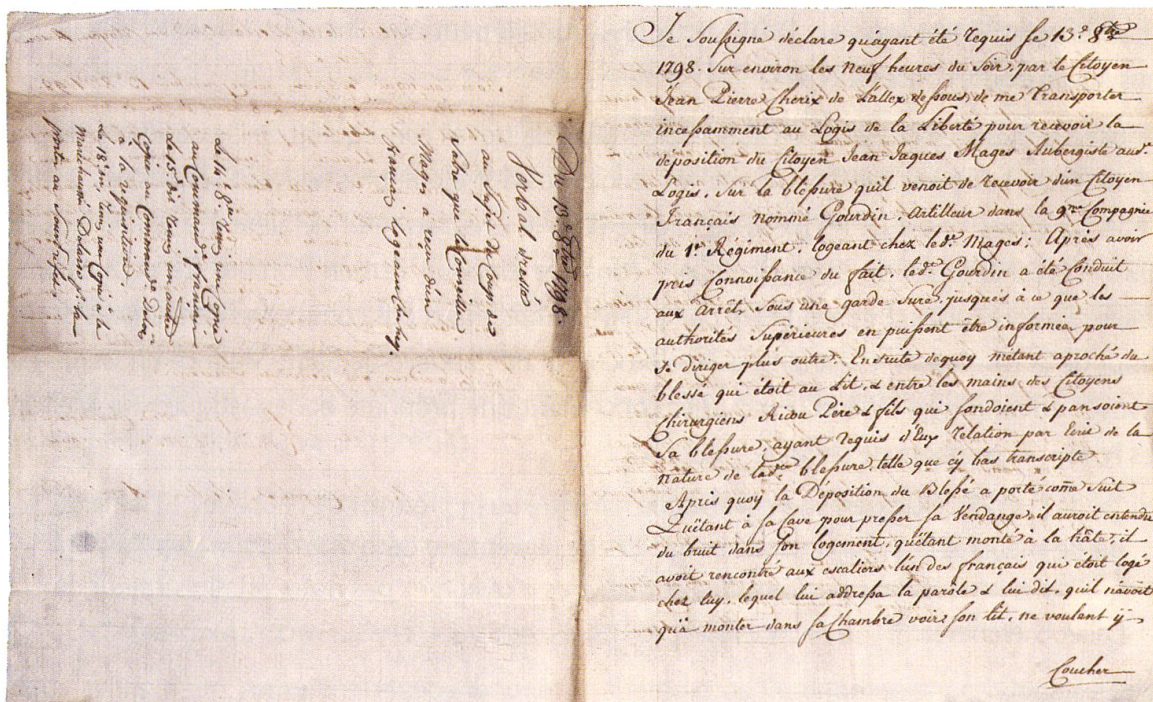 Du 13.e 8bre 1798.
Verbal dressé
au Sujet du Coup de
Sabre que le Aubergiste
Mages a reçu d'un
français logeant chez luy.
Le 14.e 8bre remis une Copie
au Command.t français
Le 15.e dit remis une autre
Copie au Command.t
à la requisition.
Le 18.e dit remis une Copie à la
porter au Sousprefect
Je Soussigné déclare qu'ayant été requis le 13.e 8bre
1798. Sur environ les Neuf heures du Soir, par le Citoyen
Jean Pierre Cherix de Lallex dessous, de me transporter
incessamment au Logis de la Liberté pour recevoir la
déposition du Citoyen Jean Jaques Mages Aubergiste aud.t
Logis, Sur la blessure qu'il venoit de recevoir d'un Citoyen
Français nommé Gourdin, Artilleur dans la 9.me Compagnie
du 1.r Régiment, logeant chez led.t Mages; Après avoir
pris Connoissance du fait, led.t Gourdin a été conduit
aux Arrêt, Sous une garde Sure, jusques à ce que les
authorités Supérieures en puissent être informée, pour
Se diriger plus outre. Ensuite dequoy m'étant aproché du
blessé qui étoit au Lit, & entre les mains des Citoyens
Chirurgiens Ricou Père & fils qui sondoient & pansoient
Sa blessure, ayant requis d'Eux relation par Ecrit de la
nature de lad.te blessure, telle que cÿ bas transcripte
Après quoy la Déposition du Blessé a porté come Suit
Qu'étant à sa Cave pour presser sa Vendange, il auroit entendu
du bruit dans son logement, qu'étant monté à la hâte, il
avoit rencontré aux escaliers l'un des français qui étoit logé
chez luy, lequel lui addressa la parôle & lui dit, qu'il n'avoit
qu'à monter dans sa Chambre voir son lit, ne voulent ÿ
Coucher